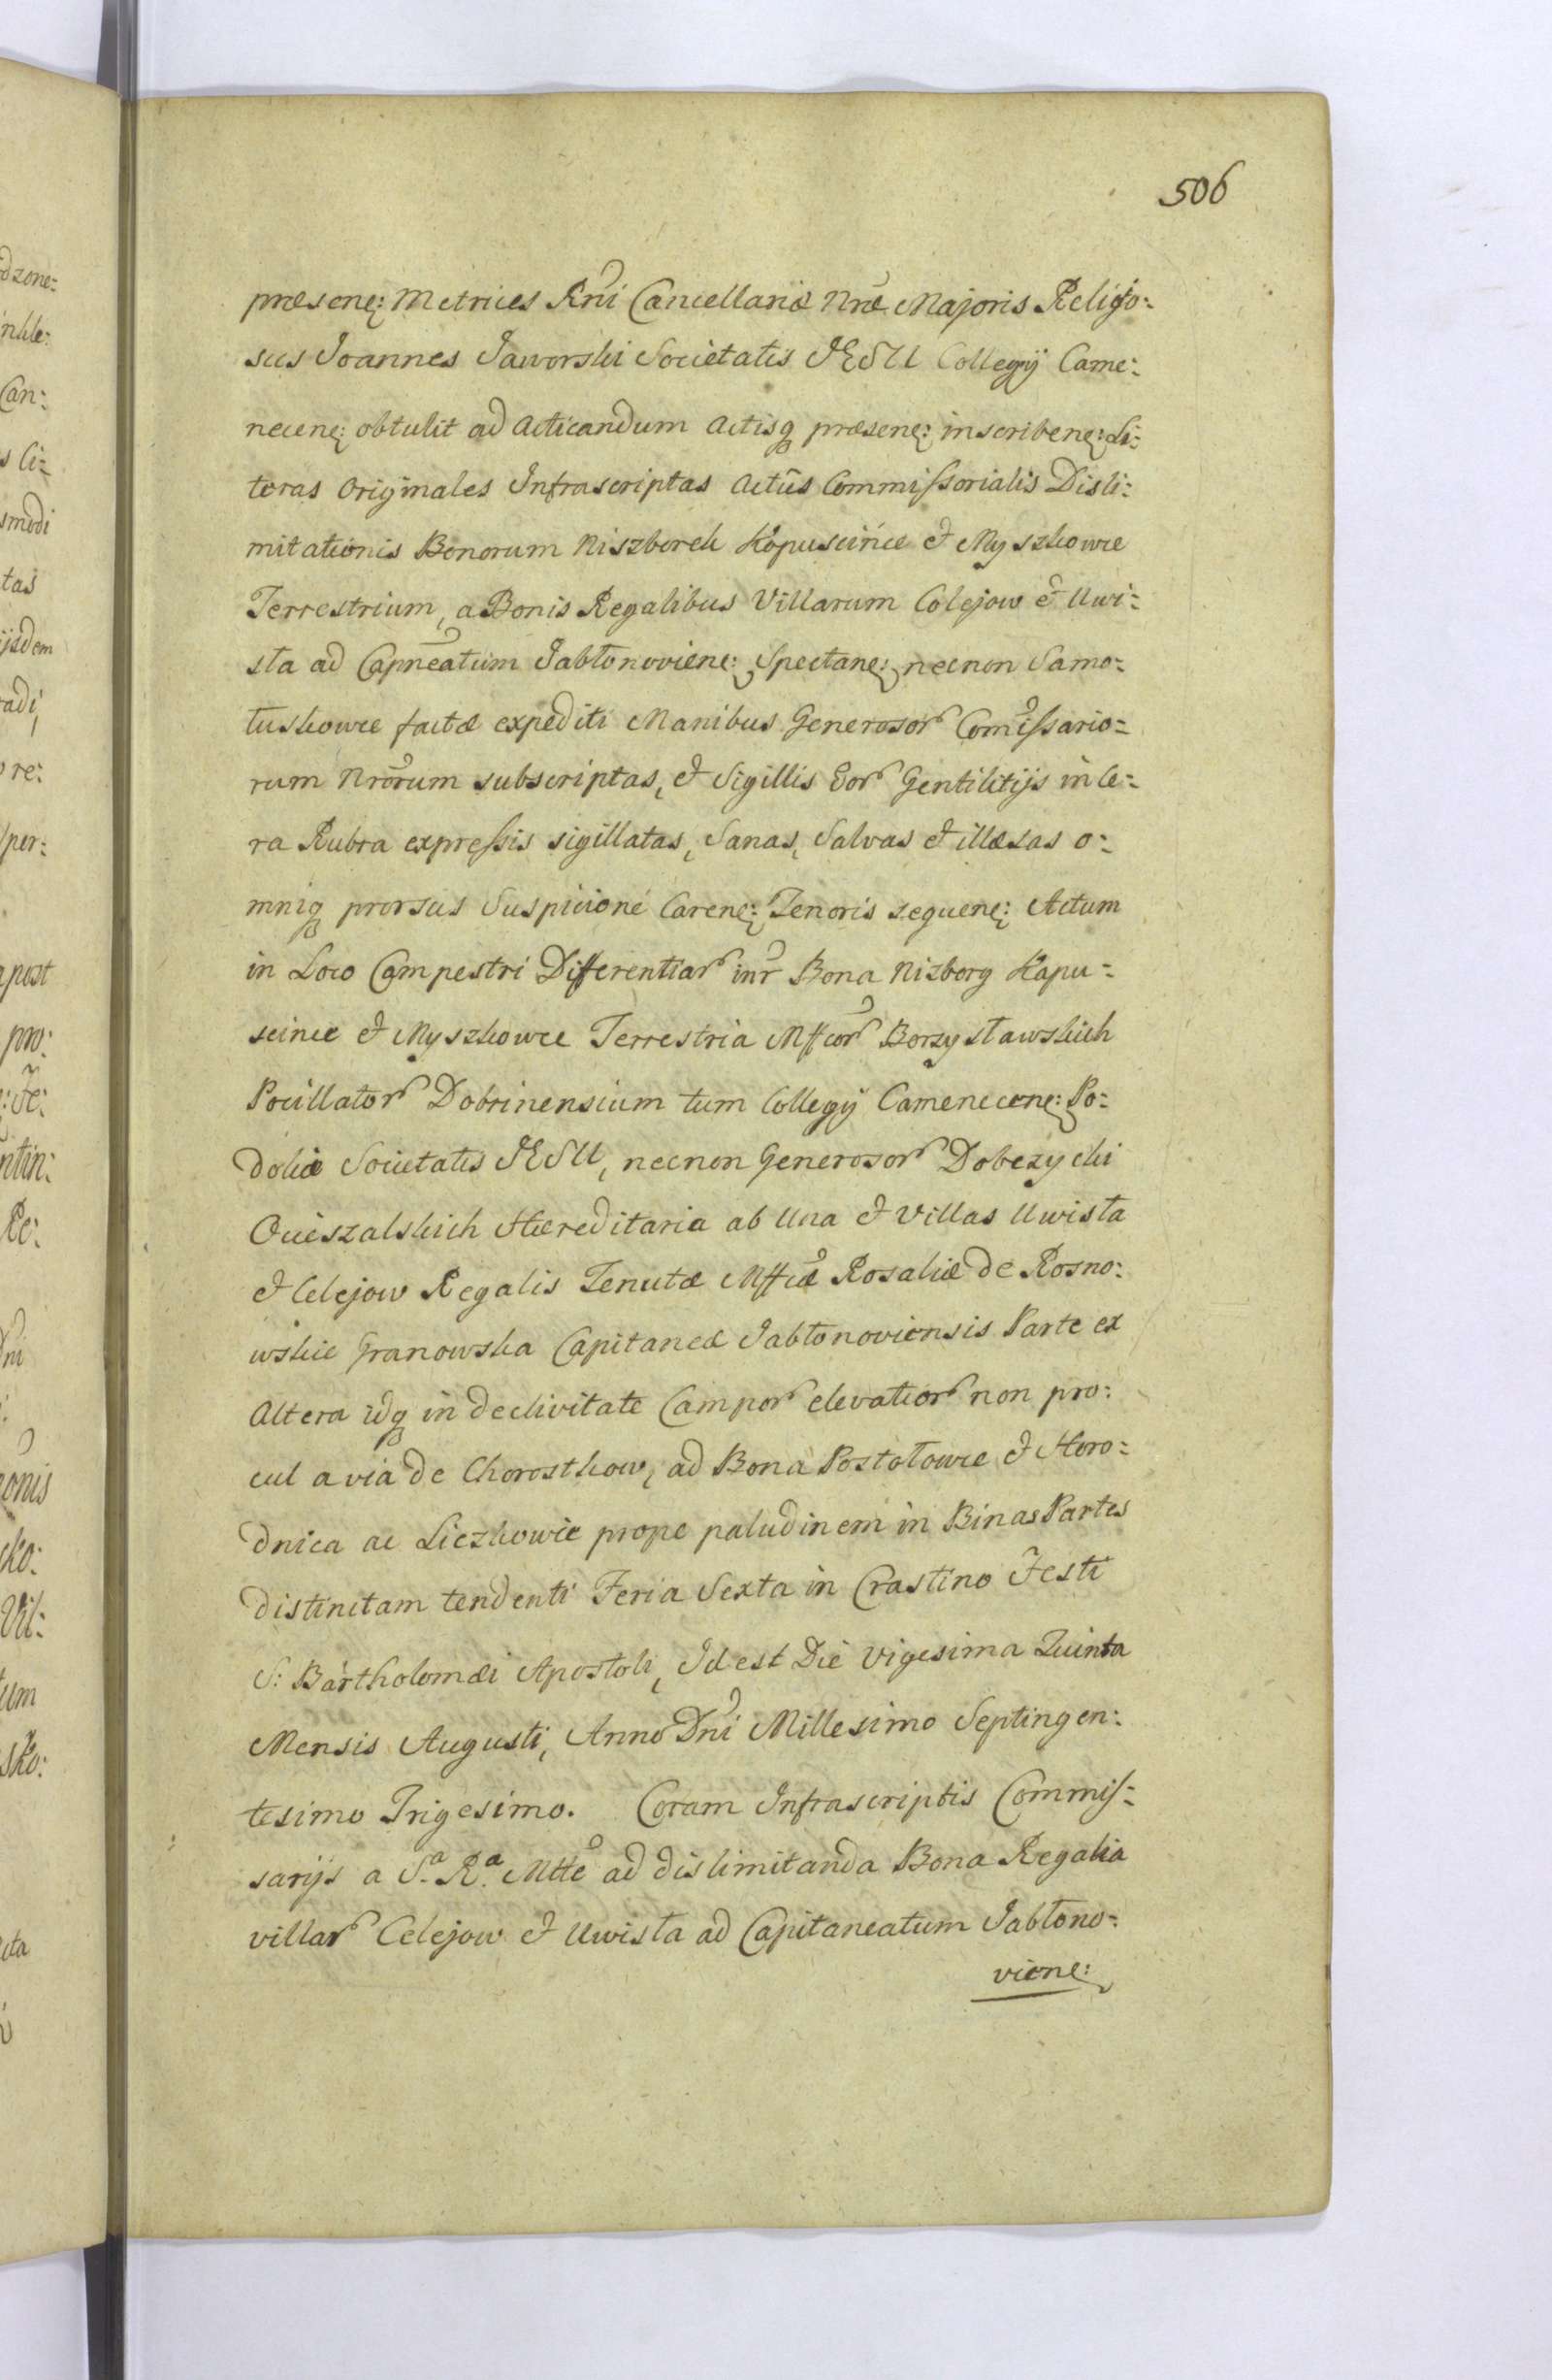 506
præsenę: Metrices Rñi Cancellariæ Nræ Majoris Religio:
sus Joannes Jaworski Societatis JESU Collegij Came:
necenę: obtulit ad Acticandum Actisq præsenę: inscribenę: Li:
teras Originales Infrascriptas Actûs Commissorialis Disli:
mitationis Bonorum Niszborek Kopuscińce et Myszkowce
Terrestrium, a Bonis Regalibus Villarum Colejow et Uwi:
sta ad Capneatum Jabłonovienę: Spectanę: necnon Samo:
tuskowce factæ expediti Manibus Generosor Comissario:
rum Nrorum subscriptas, et Sigillis Eor Gentilitijs in Ce:
ra Rubra expressis sigillatas, Sanas, Salvas et illæsas o:
mniq prorsus Suspicione Carenę: Tenoris sequenę: Actum
in Loco Campestri Differentiar intr Bona Nizborg Kapu:
scince et Myszkowce Terrestria Mffcor Borzysławskich
Pocillator Dobrinensium tum Collegij Camenecenę: Po:
doliæ Societatis JESU, necnon Generosor Dobczychi
Ouieszalskich Hæreditaria ab Una et Villas Uwista
et Celejow Regalis Tenutæ Mffcæ Rosaliæ de Rosno:
wskie Granowska Capitaneæ Jabłonoviensis Parte ex
Altera idq in declivitate Campor elevatior non pro:
cul a via de Chorostkow, ad Bona Postołowce et Horo:
dnica ac Liczkowie prope paludinem in Binas Partes
distinctam tendenti Feria Sexta in Crastino Festi
S: Bartholomæi Apostoli, Id est Die Vigesima Quinta
Mensis Augusti, Anno Dni Millesimo Septingen:
tesimo Trigesimo. Coram Infrascriptis Commis:
sarijs a S.ª R.ª Mtte ad dislimitanda Bona Regalia
villar Celejow et Uwista ad Capitaneatum Jabłono:
vienę: